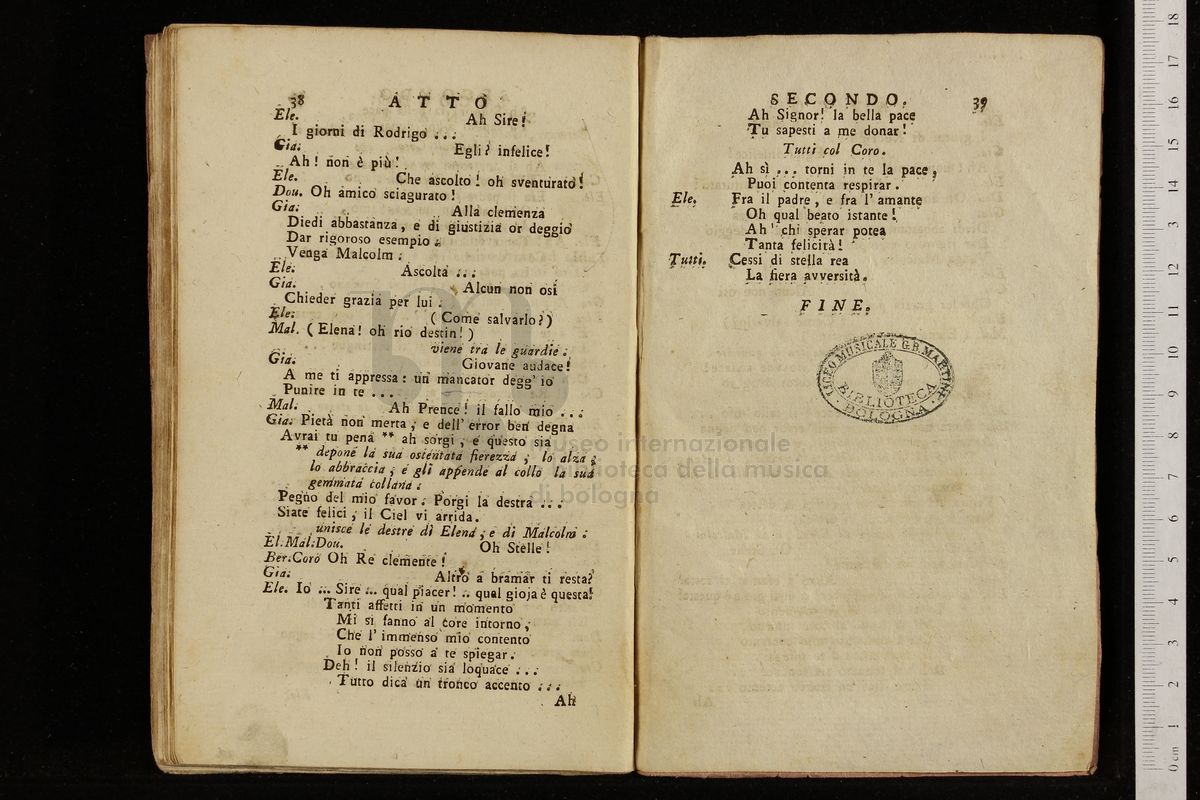 38 ATTO
Ele. Ah Sire!
I giorni di Rodrigo ...
Gia. Egli? infelice!
Ah! non è più!
Ele. Che ascolto! oh sventurato!
Dou. Oh amico sciagurato!
Gia. Alla clemenza
Diedi abbastanza, e di giustizia or deggio
Dar rigoroso esempio.
Venga Malcolm.
Ele. Ascolta ...
Gia. Alcun non osi
Chieder grazia per lui.
Ele. (Come salvarlo?)
Mal. (Elena! oh rio destin!)
viene tra le guardie.
Gia. Giovane audace!
A me ti appressa: un mancator degg' io
Punire in te ...
Mal. Ah Prence! il fallo mio ...
Gia. Pietà non merta, e dell' error ben degna
Avrai tu pena ** ah sorgi, e questo sia
** depone la sua ostentata fierezza, lo alza,
lo abbraccia, e gli appende al collo la sua
gemmata collana.
Pegno del mio favor. Porgi la destra ...
Siate felici, il Ciel vi arrida.
unisce le destre di Elena, e di Malcolm.
El. Mal. Dou. Oh Stelle!
Ber. Coro Oh Re clemente!
Gia. Altro a bramar ti resta?
Ele. Io ... Sire ... qual piacer! .. qual gioja è questa!
Tanti affetti in un momento
Mi si fanno al core intorno,
Che l' immenso mio contento
Io non posso a te spiegar.
Deh! il silenzio sia loquace ...
Tutto dica un tronco accento ...
Ah
SECONDO. 39
Ah Signor! la bella pace
Tu sapesti a me donar!
Tutti col Coro.
Ah sì ... torni in te la pace,
Puoi contenta respirar.
Ele. Fra il padre, e fra l' amante
Oh qual beato istante!
Ah! chi sperar potea
Tanta felicità!
Tutti. Cessi di stella rea
La fiera avversità.
FINE.
LICEO MUSICALE G.B. MARTINI
BIBLIOTECA
BOLOGNA
museo internazionale
e biblioteca della musica
di bologna
0 cm 1 2 3 4 5 6 7 8 9 10 11 12 13 14 15 16 17 18